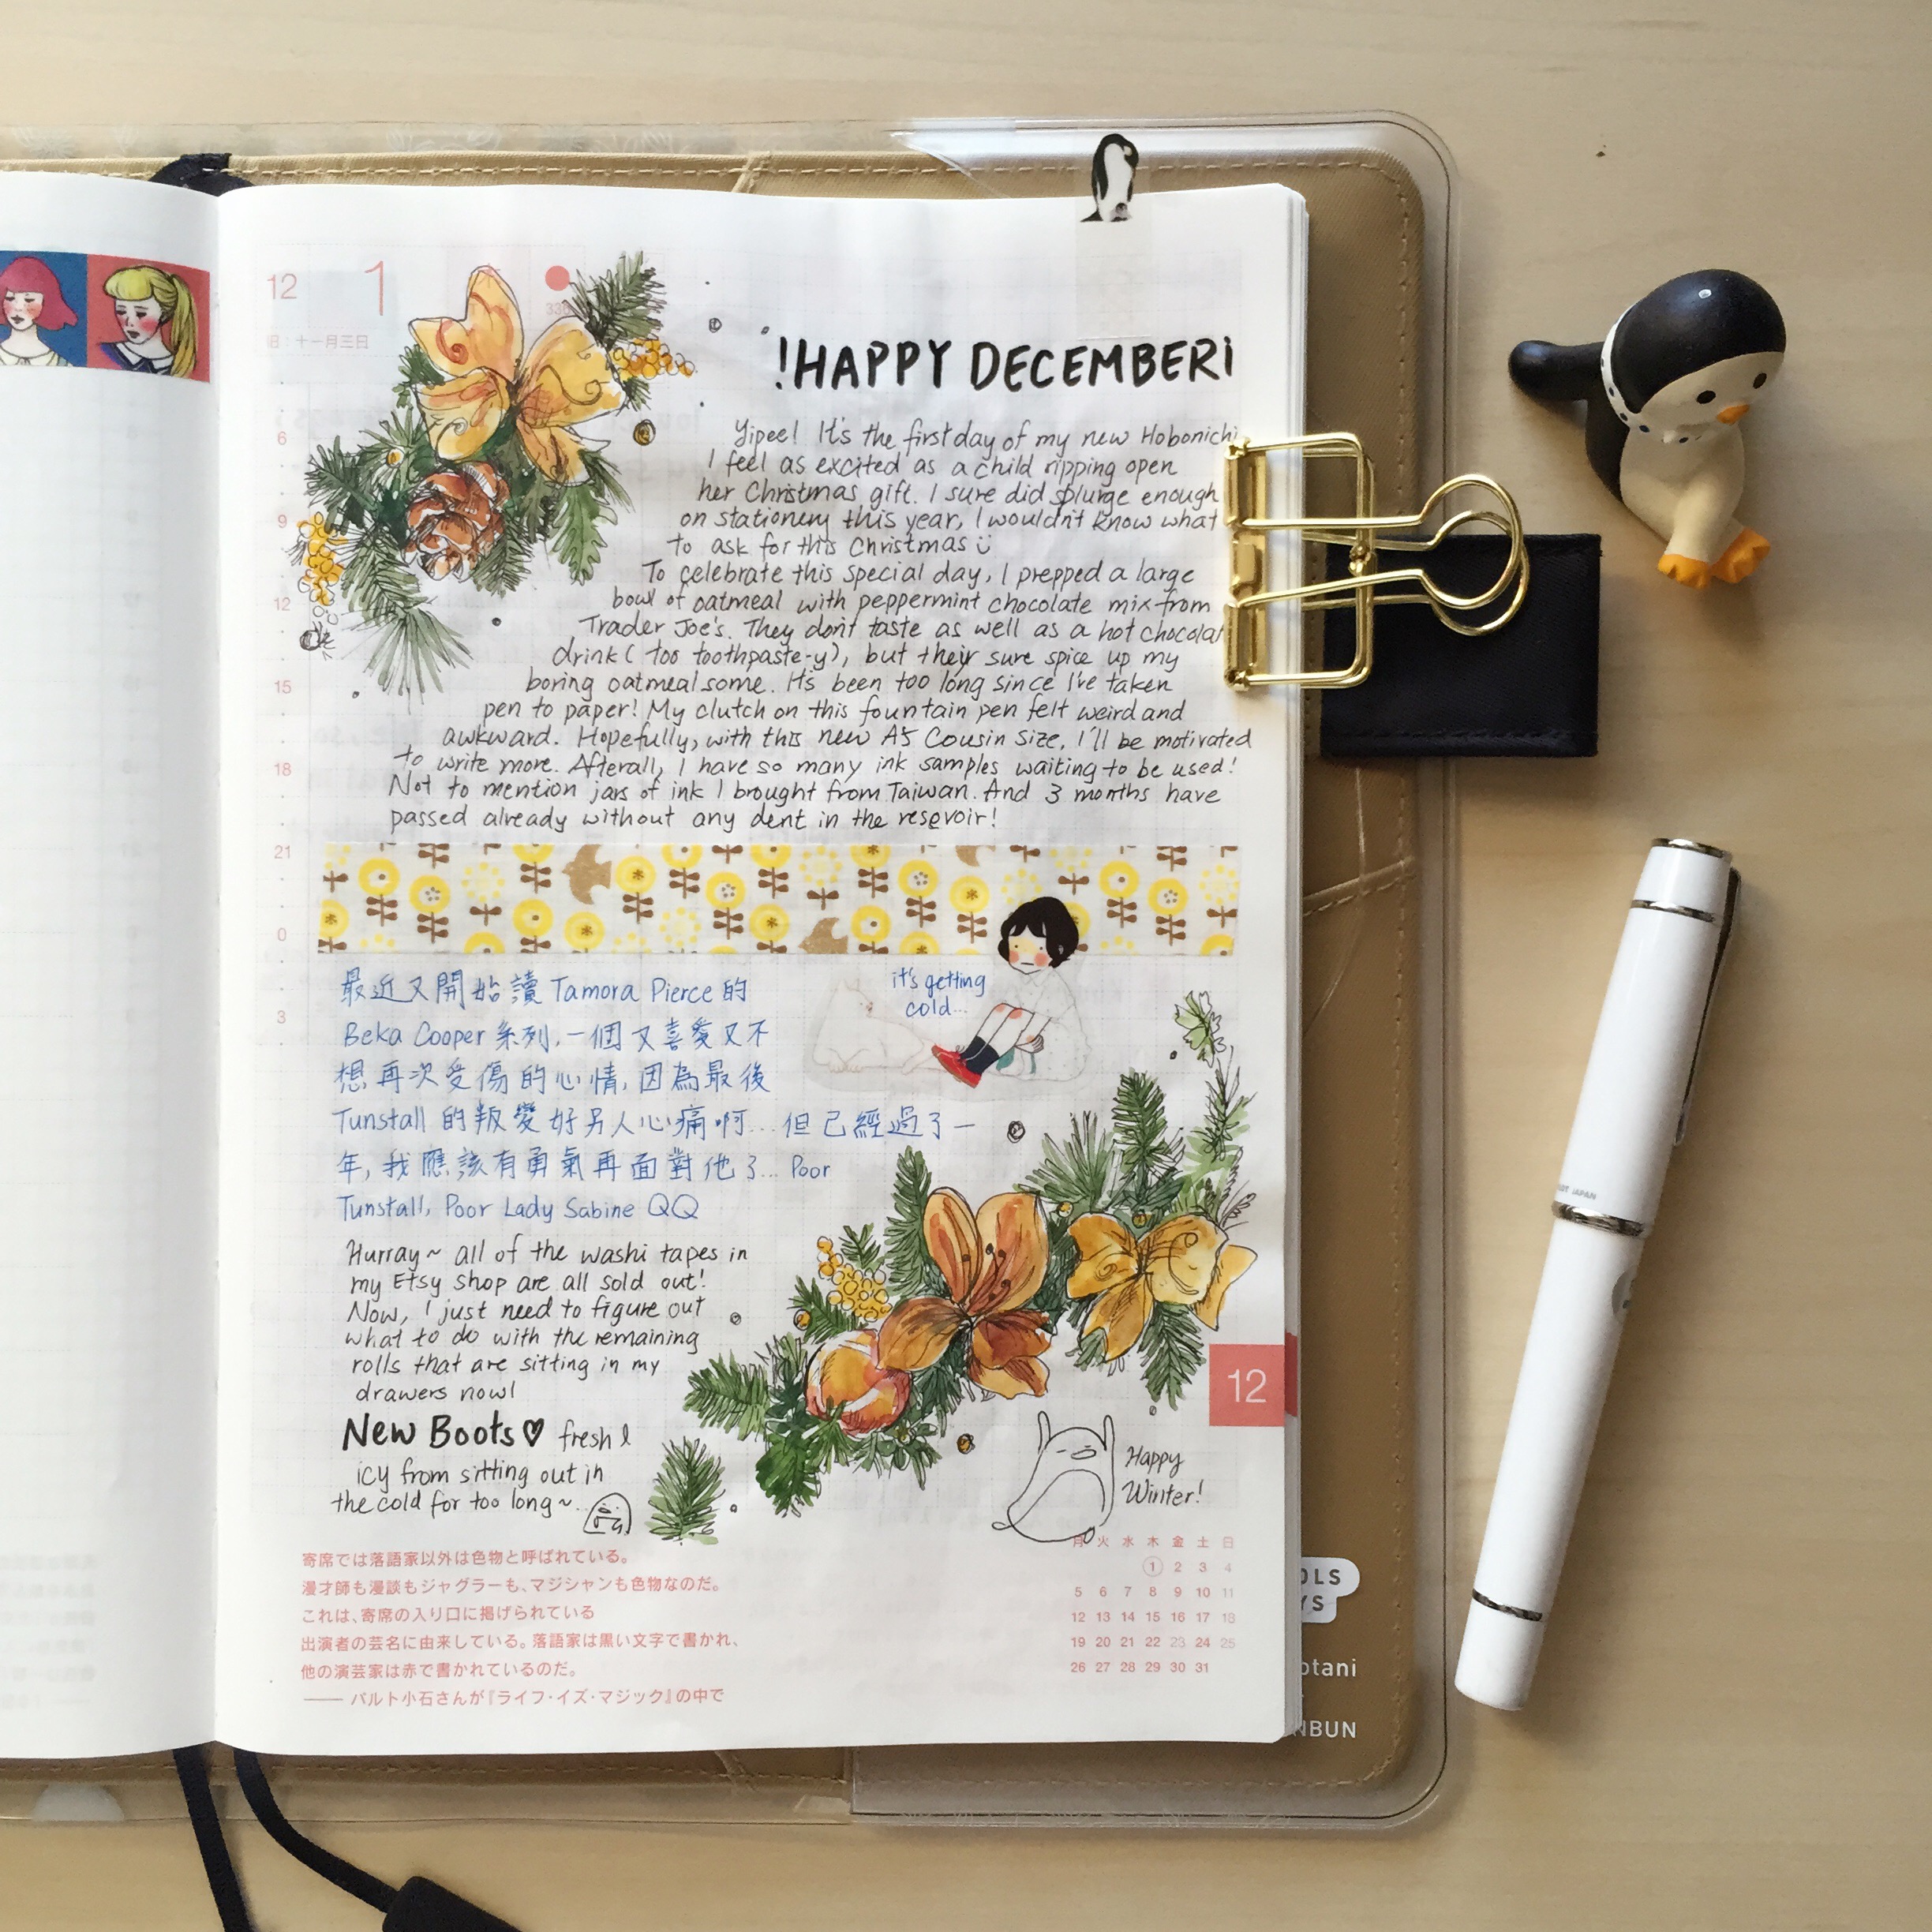 12 1
330
旧 十一月三日
!HAPPY DECEMBER!
Yipee! It's the first day of my new Hobonichi
I feel as excited as a child ripping open
her Christmas gift. I sure did splurge enough
on stationery this year, I wouldn't know what
to ask for this Christmas
To celebrate this special day, I prepped a large
bowl of oatmeal with peppermint chocolate mix from
Trader Joe's. They don't taste as well as a hot chocolat
drink ( too toothpaste-y), but their sure spice up my
boring oatmeal some. It's been too long since I've taken
pen to paper! My clutch on this fountain pen felt weird and
awkward. Hopefully, with this new A5 Cousin size, I'll be motivated
to write more. Afterall, I have so many ink samples waiting to be used!
Not to mention jars of ink I brought from Taiwan. And 3 months have
passed already without any dent in the resevoir!
6
9
12
15
18
21
0
3
it's getting
cold...
最近又開始讀 Tamora Pierce 的
Beka Cooper 系列, 一個又喜愛又不
想再次受傷的心情, 因為最後
Tunstall 的叛變好另人心痛啊... 但已經過了一
年, 我應該有勇氣再面對他了... Poor
Tunstall, Poor Lady Sabine QQ
Hurray~ all of the washi tapes in
my Etsy shop are all sold out!
Now, I just need to figure out
what to do with the remaining
rolls that are sitting in my
drawers now!
New Boots♡ fresh &
icy from sitting out in
the cold for too long~..
12
Happy
Winter!
寄席では落語家以外は色物と呼ばれている。
漫才師も漫談もジャグラーも、マジシャンも色物なのだ。
これは、寄席の入り口に掲げられている
出演者の芸名に由来している。落語家は黒い文字で書かれ、
他の演芸家は赤で書かれているのだ。
—— バルト小石さんが『ライフ・イズ・マジック』の中で
月 火 水 木 金 土 日
1 2 3 4
5 6 7 8 9 10 11
12 13 14 15 16 17 18
19 20 21 22 23 24 25
26 27 28 29 30 31
OLS
YS
otani
NBUN
JAPAN